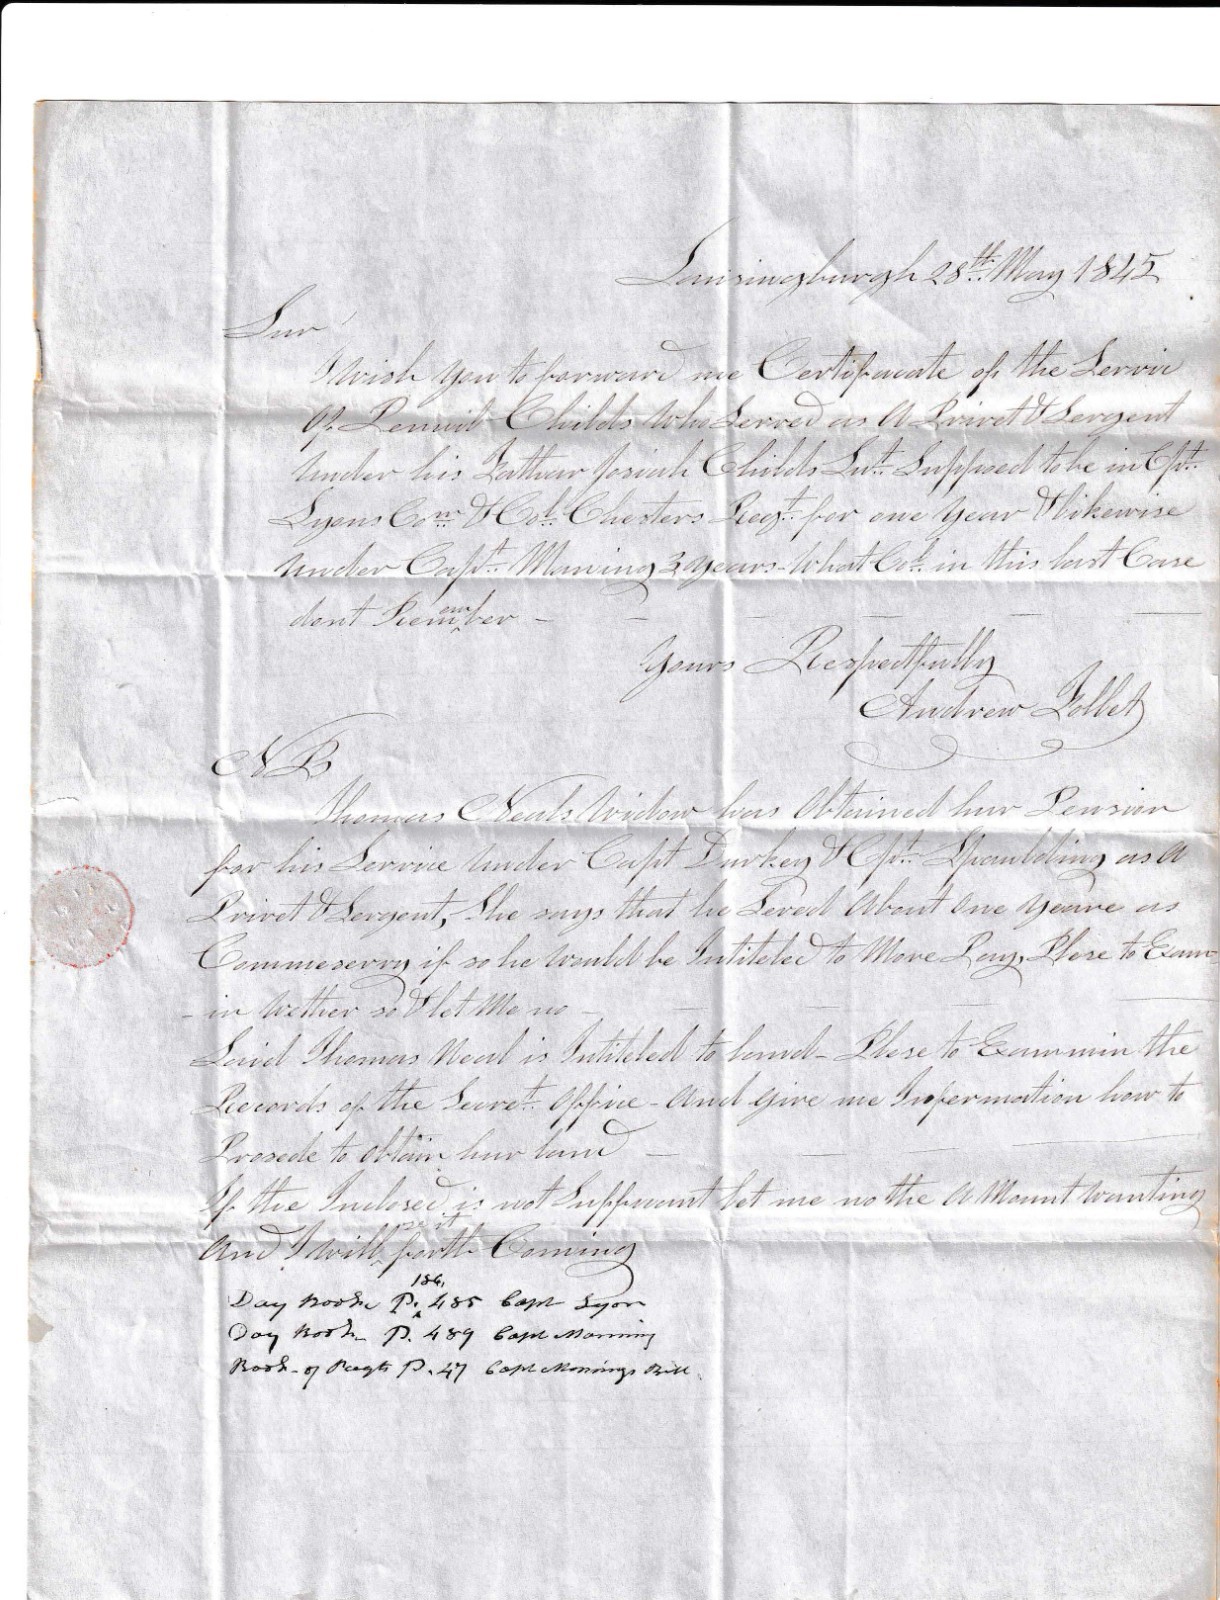 Lansingburgh 28th May 1845
Sur
I wish you to forward me Certifacate of the Servic
Of Penuel Childs Who Served as A Privet & Sergent
under his Father Josiah Childs Lut. Supposed to be in Cpt.
Lyons Com & Col. Chesters Regt. for one Year & likewise
under Capt. Maning 3 years - What Col. in this last Case
dont Remember -
em
Yours Respectfully
Andrew Follet
NB
Thomas Neals Widow has Obtained hur Pension
for his Service under Capt Durkey & Cpt. Spaulding as A
Privet & Sergent, She says that he Seved About One Yeare as
Commeserry if so he would be Intiteled to More Pay, Plese to Exam-
- in Wether so & let Me no -
Said Thomas Neal is Intiteled to land - Plese to Exammin the
Records of the Secret. Office - And give me Infermation how to
Prosede to obtain hur land -
If the Inclosed is not Suffaunt let me no the A Mount Wanting
And I will forth Coming
186,
Day Book P. 485 Capt Lyon
Day Book P. 489 Capt Manning
Book of Regts P. 47 Capt Mannings Bill